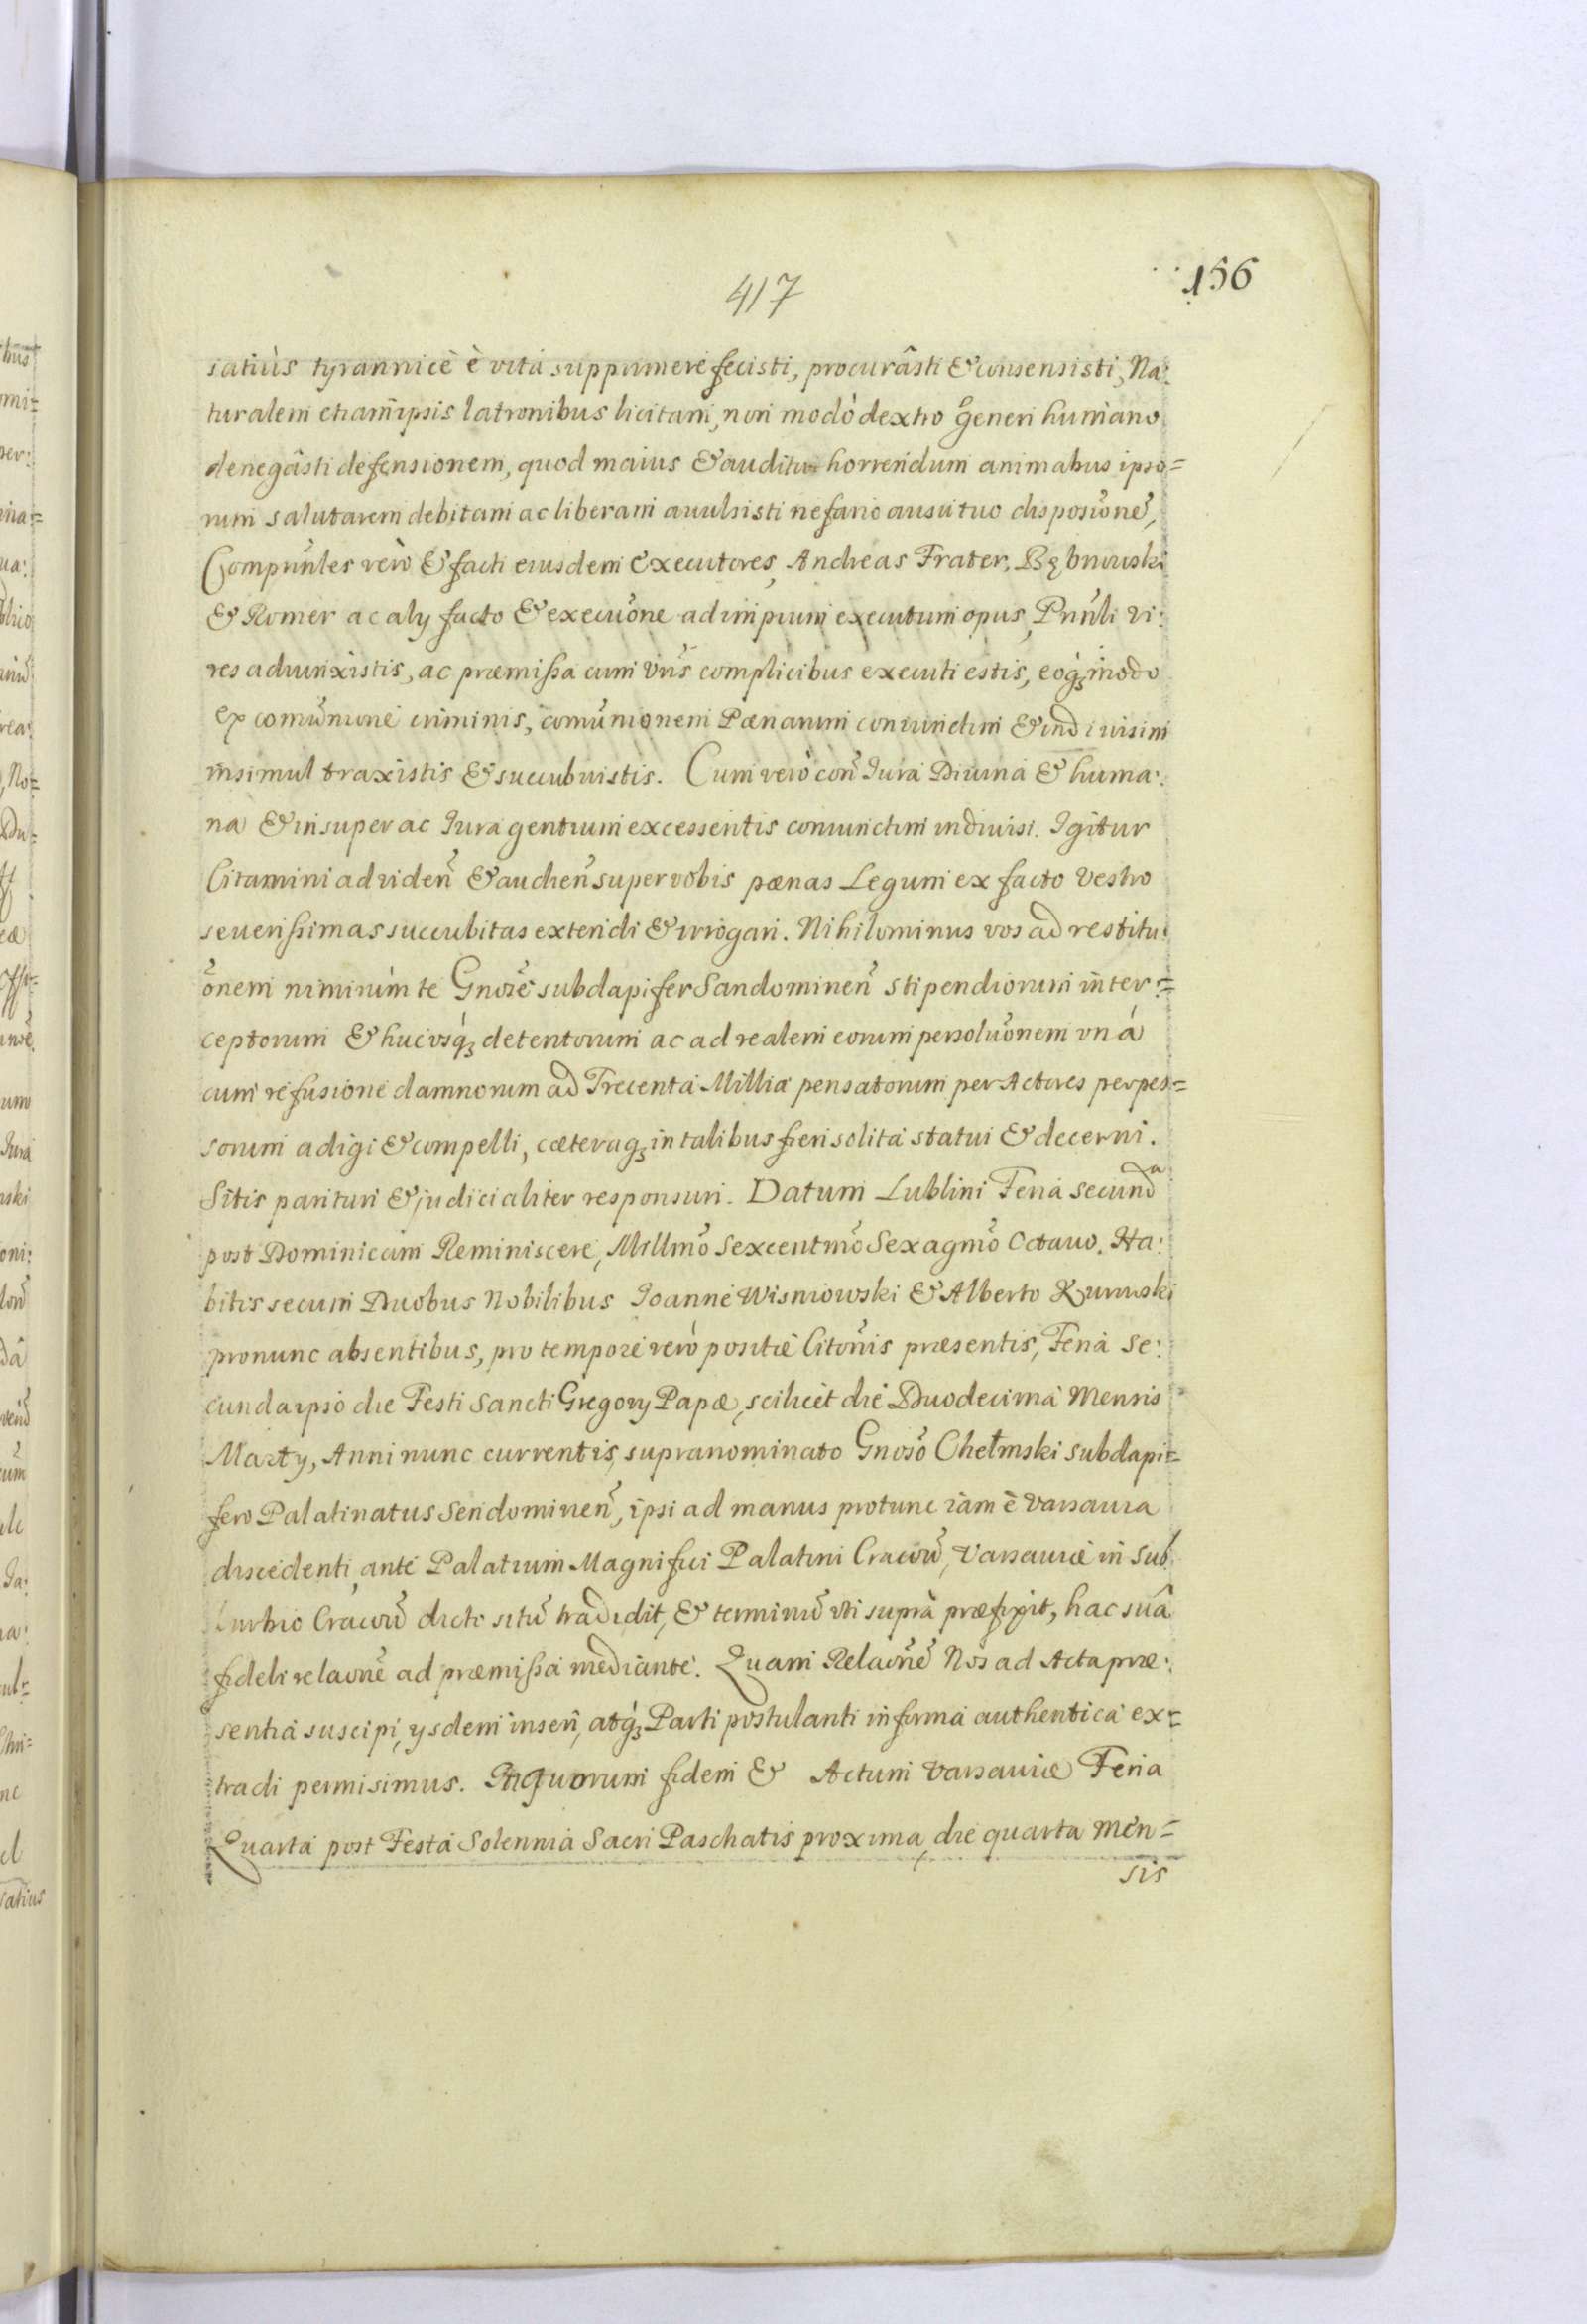 417
156
satiùs tyrannicè è vita supprimere fecisti, procurâsti & consensisti, Na:
turalem etiam ipsis latronibus licitam, non modò dextro generi humano
denegâsti defensionem, quod maius & auditu horrendum animabus ipso=
rum salutarem debitam ac liberam auulsisti nefario ausu tuo disposiõnẽ,
Comprinṽles verò & facti eiusdem executores, Andreas Frater, Bębnowski
& Romer ac aly facto & execuõne ad impium executum opus, Prinṽli vi:
res adiunxistis, ac præmissa cum vr̃is complicibus executi estis, eoq́; modo
ex com̃unione criminis, com̃unionem Pænarum coniunctim & indiuisim
insimul traxistis & succubuistis. Cum verò con̄ Jura Diuina & huma:
na & insuper ac Jura gentium excessentis coniunctim indiuisi. Igitur
Citamini ad viden̄ & audien̄ super vobis pænas Legum ex facto vestro
seuerissimas succubitas extendi & irrogari. Nihilominus vos ad restitu:
õnem nimirùm te Gnõse subdapifer Sandomirien̄ stipendiorum inter=
ceptorum & hucvsq́; detentorum ac ad realem eorum persoluõnem vná
cum refusione damnorum ad Trecenta Millia pensatorum per Actores perpes=
sorum adigi & compelli, cæteraq; in talibus fieri solita statui & decerni.
Sitis parituri & judicialiter responsuri. Datum Lublini Feria secunda
post Dominicam Reminiscere, Millmõ Sexcentmõ Sexagmõ Octauo. Ha:
bitis secum Duobus Nobilibus Joanne Wisniowski & Alberto Kurowski
pronunc absentibus, pro tempore verò positæ Citõnis præsentis, Feria Se:
cunda ipso die Festi Sancti Gregory Papæ, scilicet die Duodecima Mensis
Marty, Anni nunc currentis, supranominato Gnõso Chełmski subdapi=
fero Palatinatus Sendomirien̄, ipsi ad manus protunc iàm è Varsauia
discedenti, ante Palatium Magnifici Palatini Cracoũ, Varsauiæ in Sub
burbio Cracoũ dicto sitũ tradidit, & terminũ vti suprà præfixit, hac suâ
fideli relaõne ad præmissa mediante. Quam Relaõnẽ Nos ad Acta præ:
sentia suscipi, ysdem inseri, atq́; Parti postulanti in forma authentica ex=
tradi permisimus. In quorum fidem & Actum Varsauiæ Feria
Quarta post Festa Solennia Sacri Paschatis proxima, die quarta Men=
sis